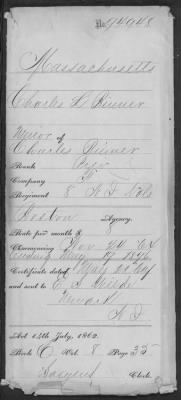 No. 94948
Massachusetts
Charles L Pinner
Minor of
Charles Pinner
Rank
Company
Regiment 8
Boston Agency.
Rate per month 8
Commencing Nov 24 64
ending May 19 1876
Certificate dated
and sent to E
Newark
N J
Act 14th July, 1862.
Book Vol. 8 Page 35
Clerk.